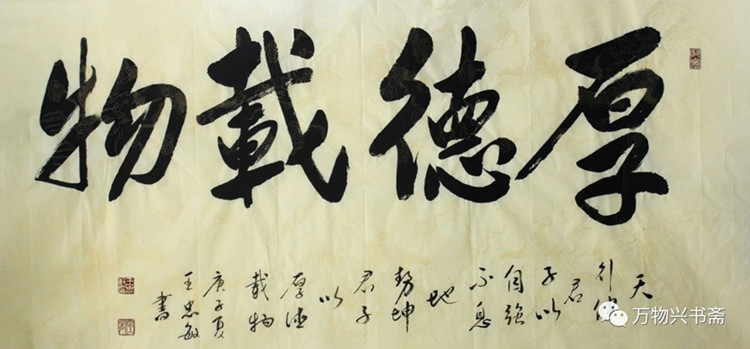 厚德載物
天
行健
君
子以
自強
不息
地
勢坤
君子
以
厚德
載物
庚子夏
王忠敏
書
万物兴书斋